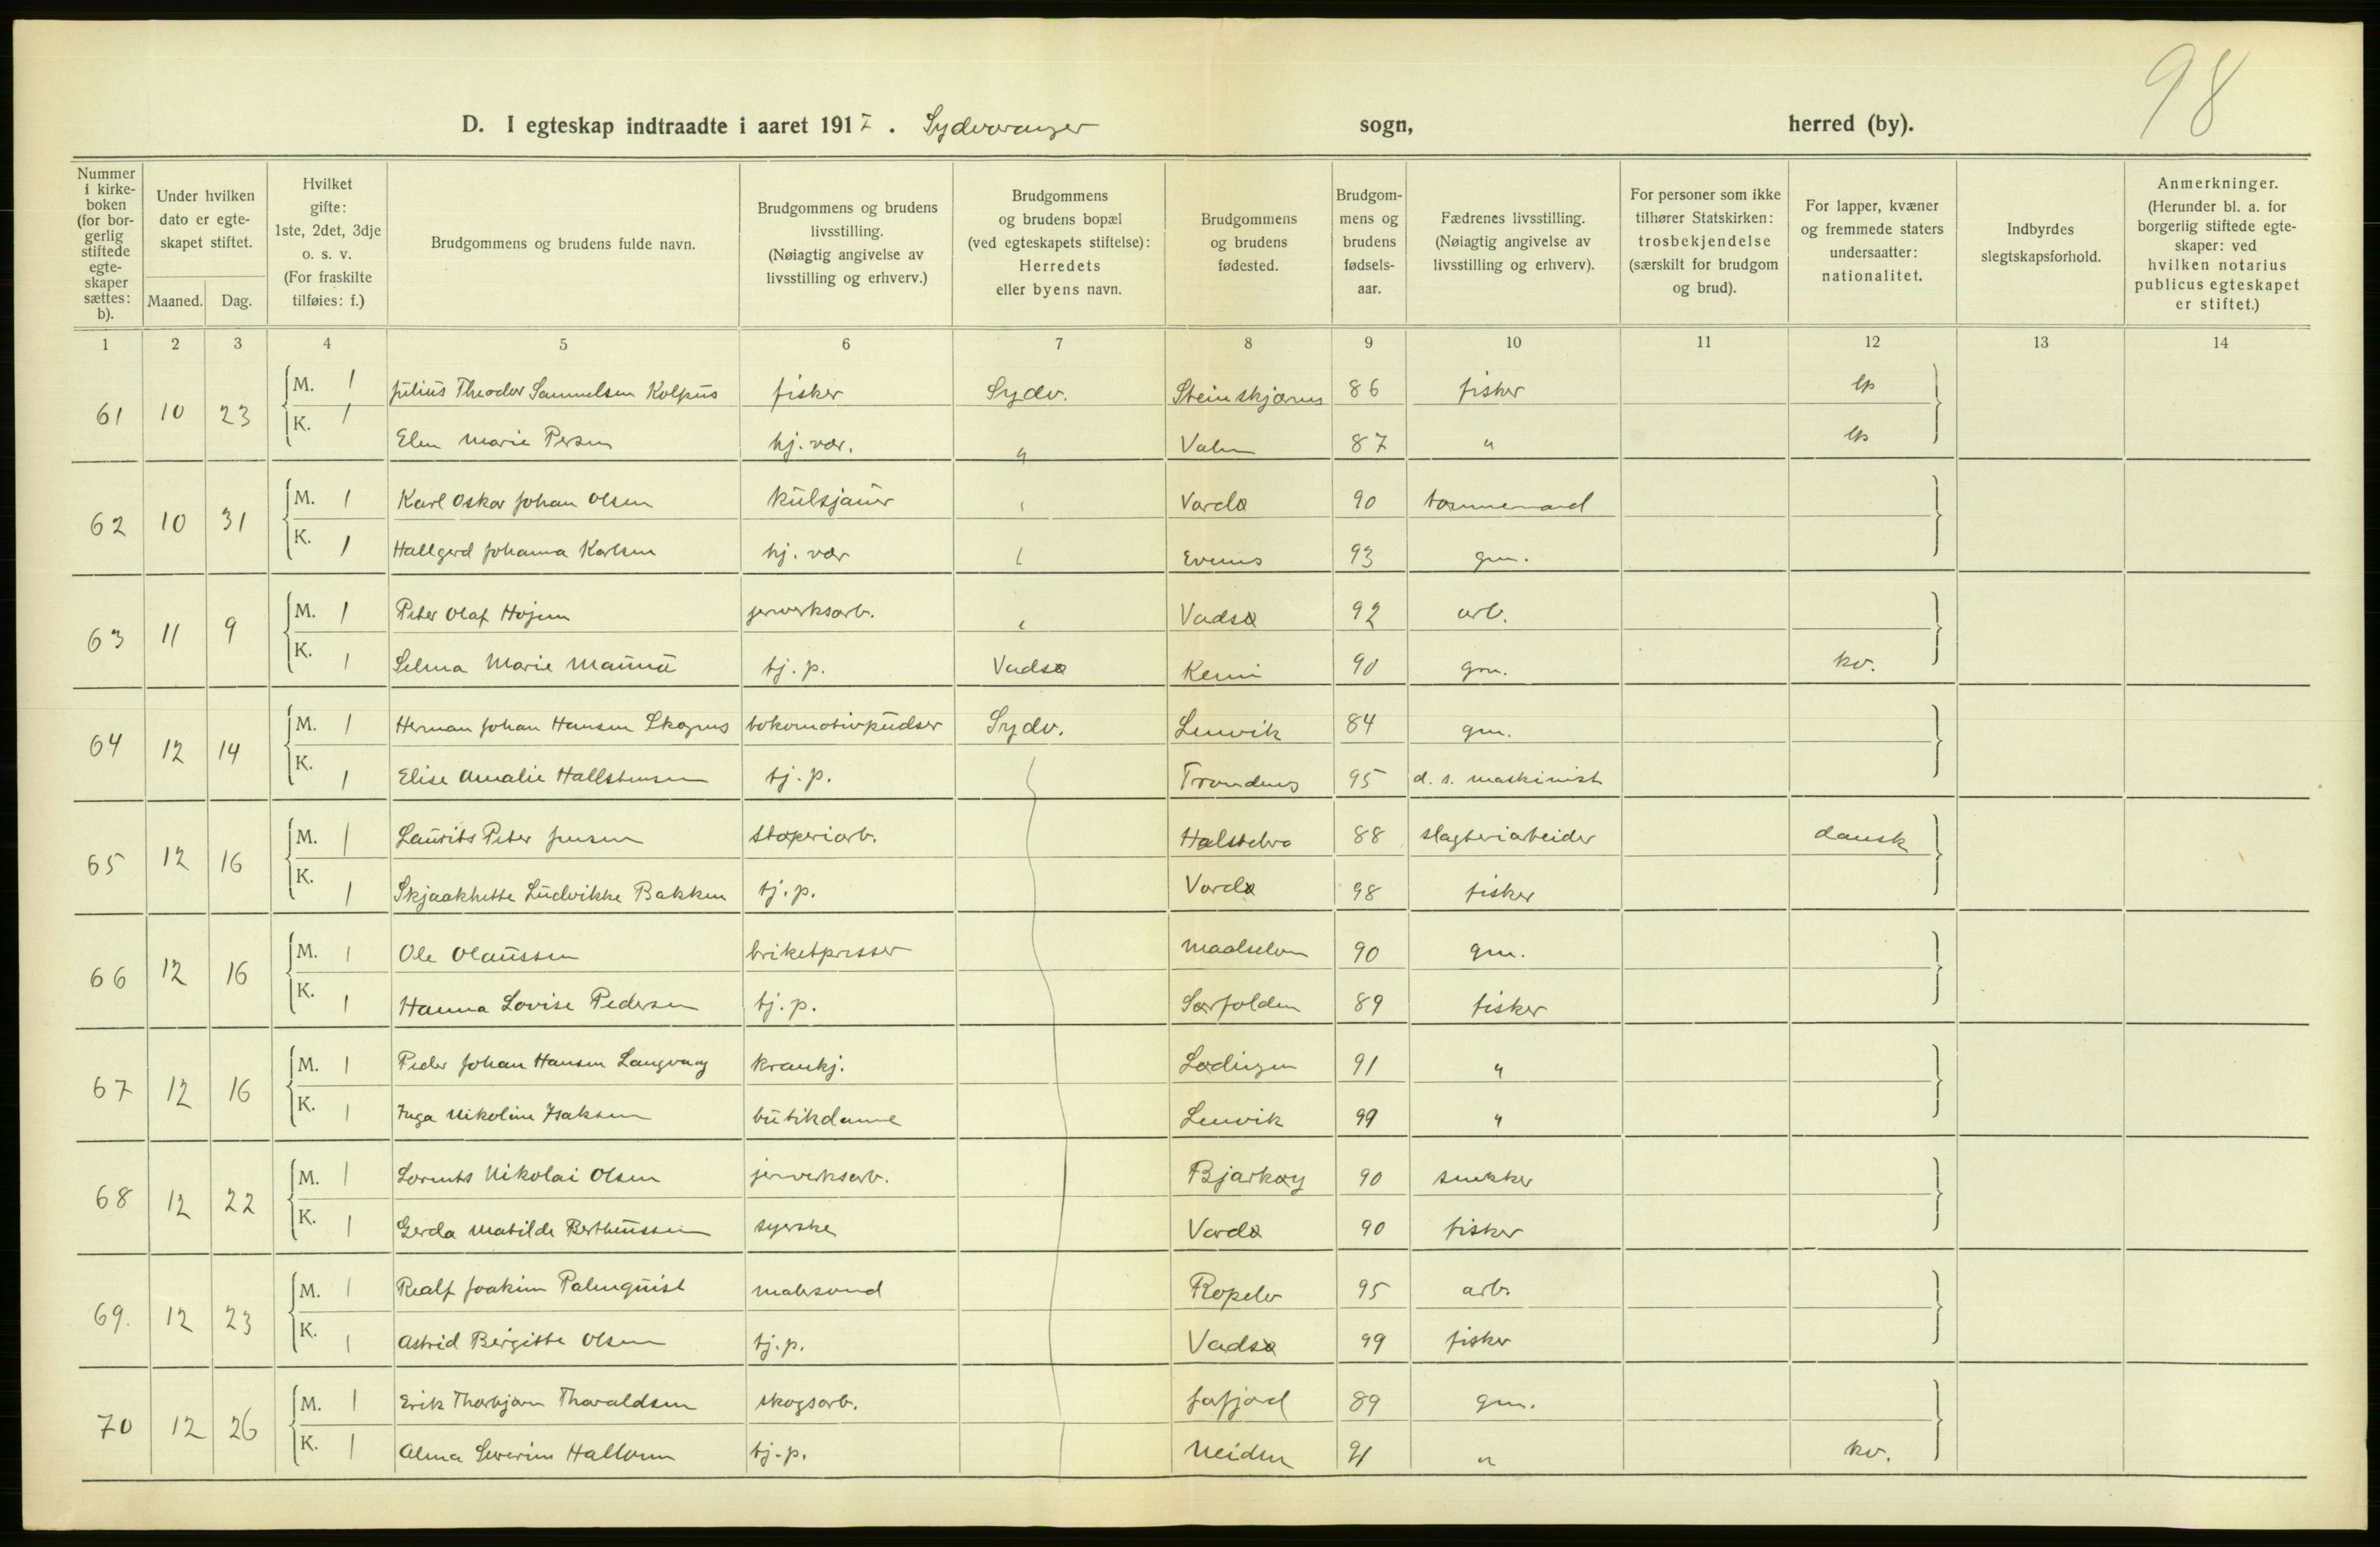 98
D. I egteskap indtraadte i aaret 1917. Sydvaranger sogn, herred (by).
Nummer i kirkeboken (for borgerlig stiftede egteskaper sættes: b).
Under hvilken dato er egteskapet stiftet.
Maaned. Dag.
Hvilket gifte: 1ste, 2det, 3dje o. s. v. (For fraskilte tilføies: f.)
Brudgommens og brudens fulde navn.
Brudgommens og brudens livsstilling. (Nøiagtig angivelse av livsstilling og erhverv.)
Brudgommens og brudens bopæl (ved egteskapets stiftelse): Herredets eller byens navn.
Brudgommens og brudens fødested.
Brudgommens og brudens fødselsaar.
Fædrenes livsstilling. (Nøiagtig angivelse av livsstilling og erhverv).
For personer som ikke tilhører Statskirken: trosbekjendelse (særskilt for brudgom og brud).
For lapper, kvæner og fremmede staters undersaatter: nationalitet.
Indbyrdes slegtskapsforhold.
Anmerkninger. (Herunder bl. a. for borgerlig stiftede egteskaper: ved hvilken notarius publicus egteskapet er stiftet.)
1 2 3 4 5 6 7 8 9 10 11 12 13 14
61 10 23 M. 1 Julius Theodor Samuelsen Kolpus fisker Sydv. Steinskjærnes 86 fisker lp
K. 1 Elen Marie Persen hj. vær. " 87 " lp
62 10 31 M. 1 Karl Oskar Johan Olsen kulsjauer Vardø 90 tømmermand
K. 1 Hallgerd Johanna Karlsen hj. vær Evenes 93 gm.
63 11 9 M. 1 Peter Olaf Hojem jernverksarb. Vadsø 92 arb.
K. 1 Selma Marie Maunu tj. p. Vadsø Kemi 90 gm. kv.
64 12 14 M. 1 Herman Johan Hansen Skognes lokomotivpudser Sydv. Lenvik 84 gm.
K. 1 Elise Amalie Hallstensen tj. p. Trondenes 95 d. s. maskinist
65 12 16 M. 1 Laurits Peter Jensen støperiarb. Holstebro 88 slagteriarbeider dansk
K. 1 Ludvikke Bakken tj. p. Vardø 98 fisker
66 12 16 M. 1 Ole Olaussen briketpresser Maalselven 90 gm.
K. 1 Hanna Lovise Pedersen tj. p. Sørfolden 89 fisker
67 12 16 M. 1 Peder Johan Hansen Langvaag krankj. Lødingen 91 "
K. 1 Inga Nikoline Isaksen butikdame Lenvik 99 "
68 12 22 M. 1 Lorents Nikolai Olsen jernverksarb. Bjarkøy 90 snekker
K. 1 Gerda Matilde Bertheussen syerske Vardø 90 fisker
69. 12 23 M. 1 Realf Joakim Palmquist matrosmand Ropelv 95 arb.
K. 1 Astrid Bergitte Olsen tj. p. Vadsø 99 fisker
70 12 26 M. 1 Erik Thorbjørn Tharaldsen skogsarb. Jafjord 89 gm.
K. 1 Alma Severine Hallonen tj. p. Neiden 91 " kv.